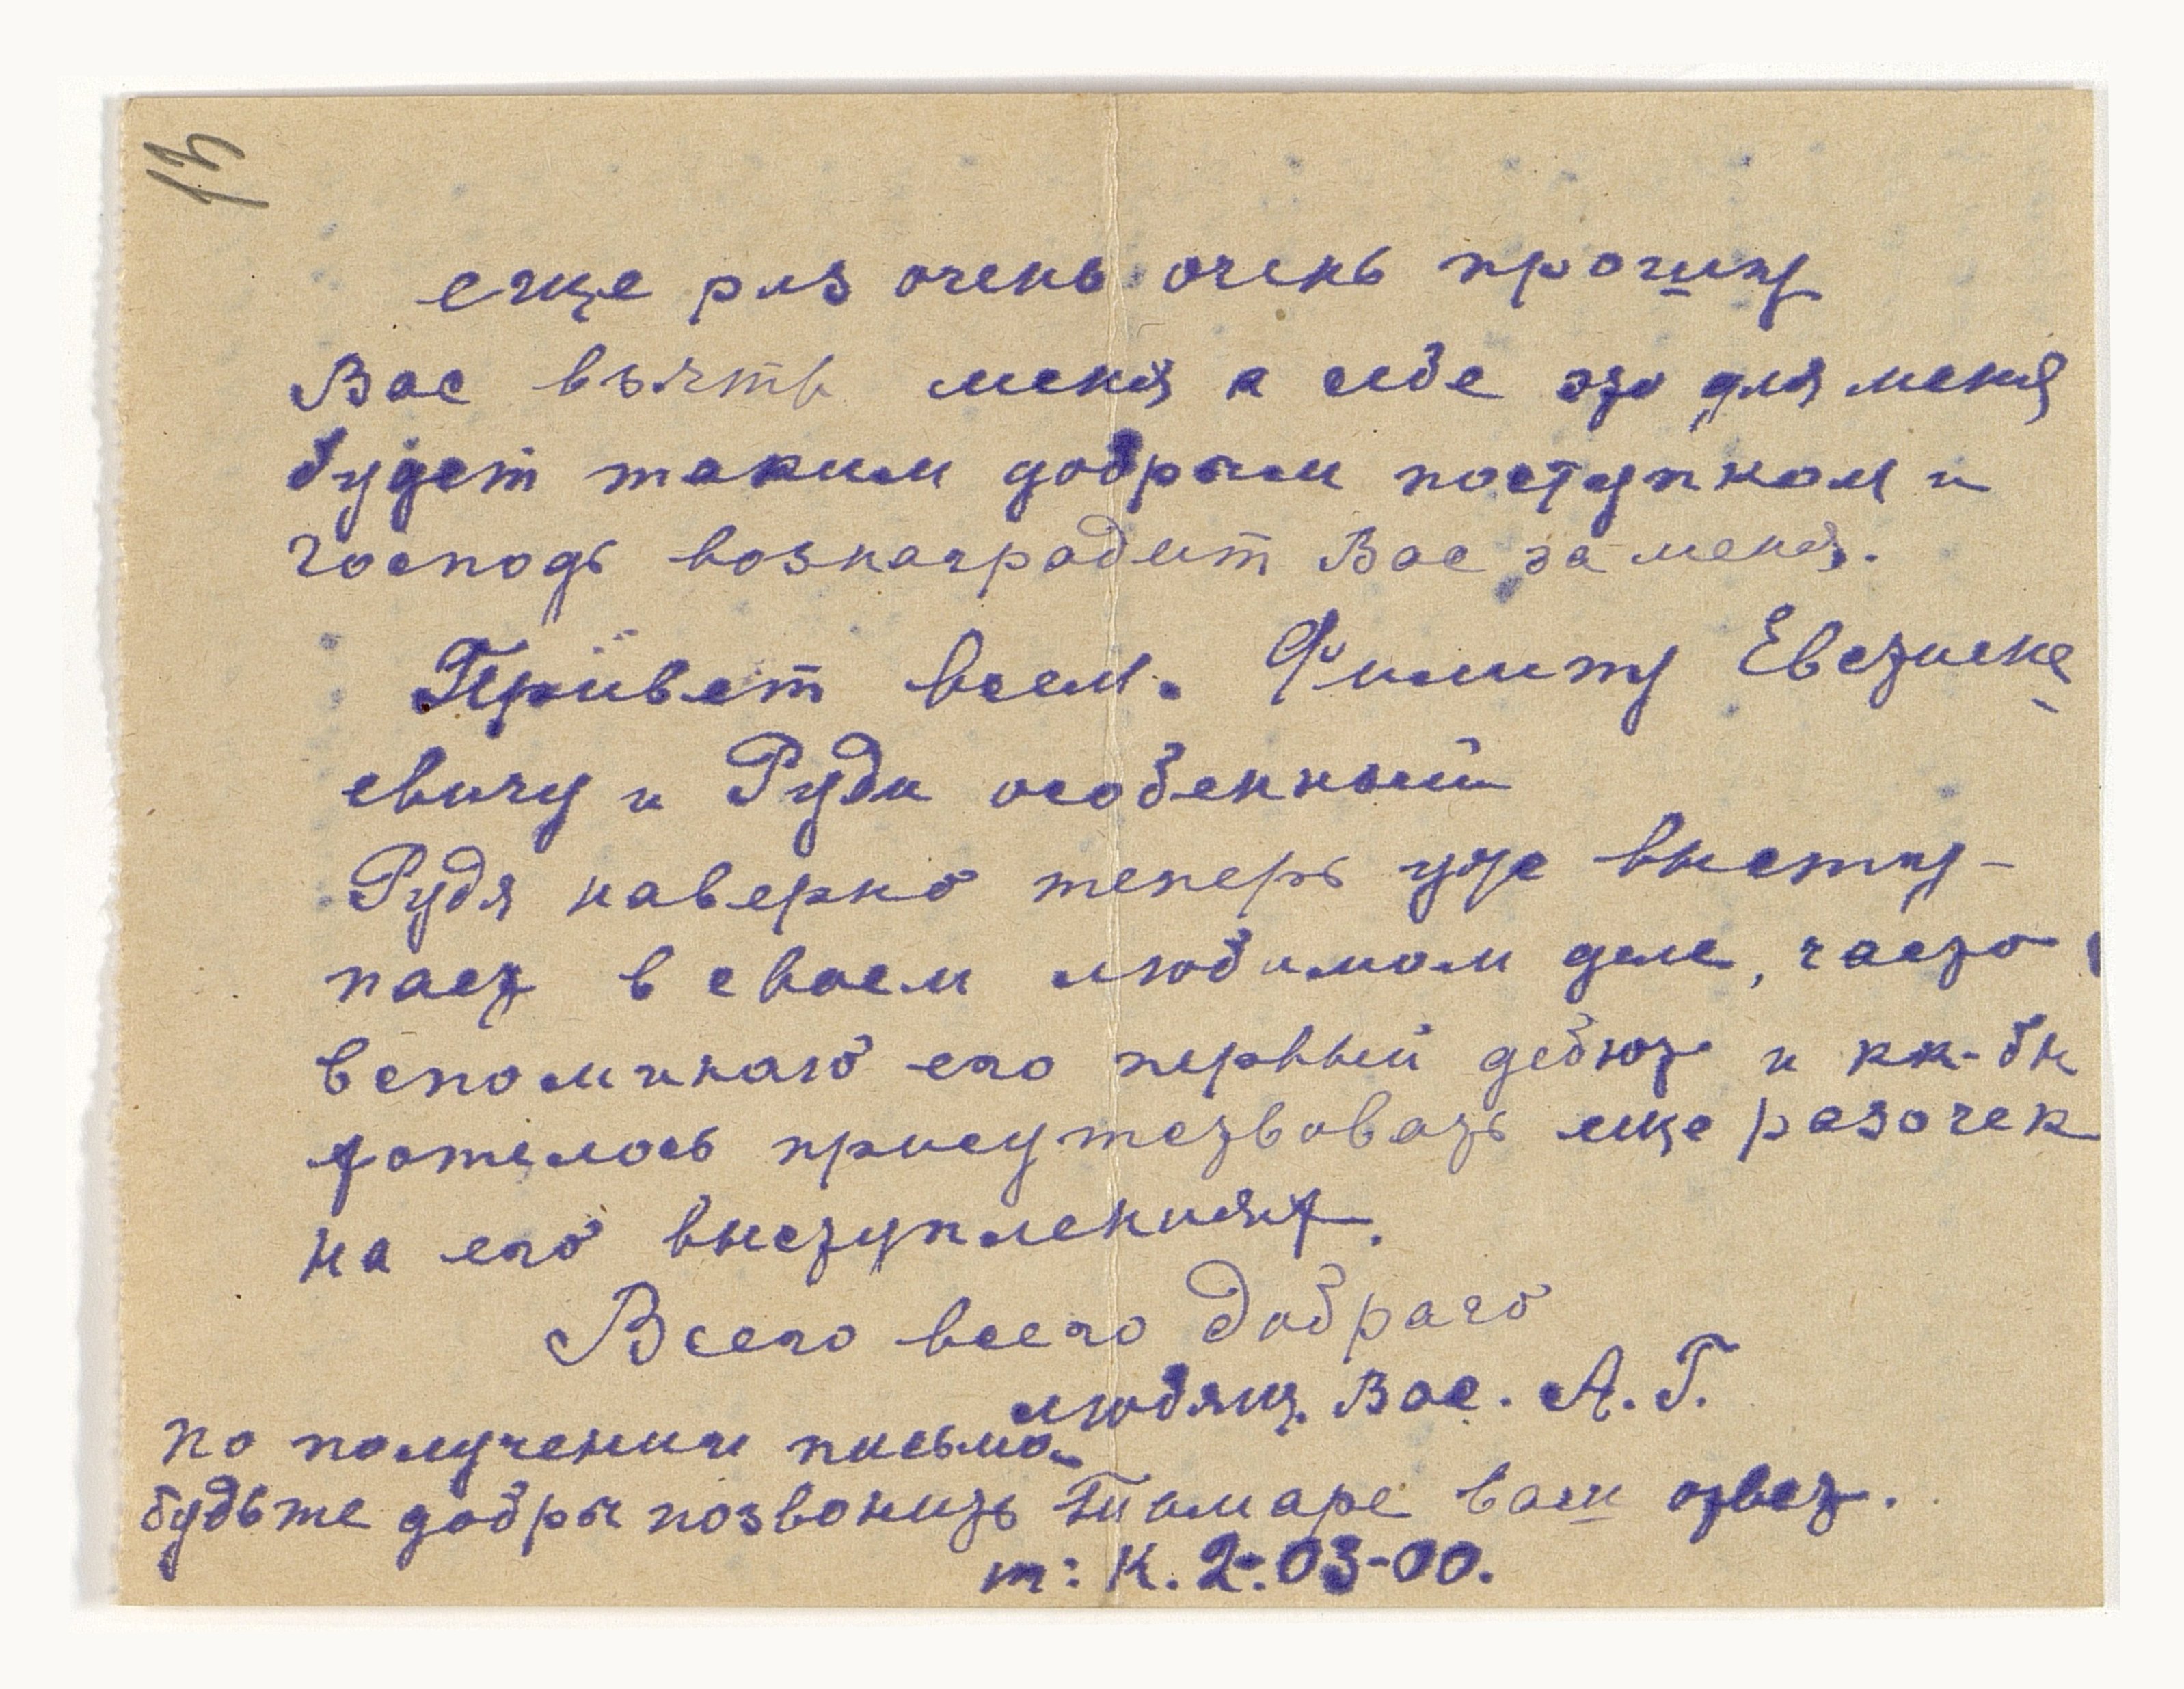 13
еще раз очень очень прошу
Вас взять меня к себе это для меня
будет таким добрым поступком и
Господь вознаградит Вас за меня.
Привет всем. Филиппу
евичу и Руди особенный
Рудя наверно теперь уже высту-
пает в своем любимом деле, часто
вспоминаю его первый дебют и кк-бы
хотелось присутствовать еще разочек
на его выступлениях.
Всего всего доброго
любящ. Вас. А. Г.
по получении письма
будьте добры позвонить Тамаре ваш ответ.
т: К. 2-03-00.